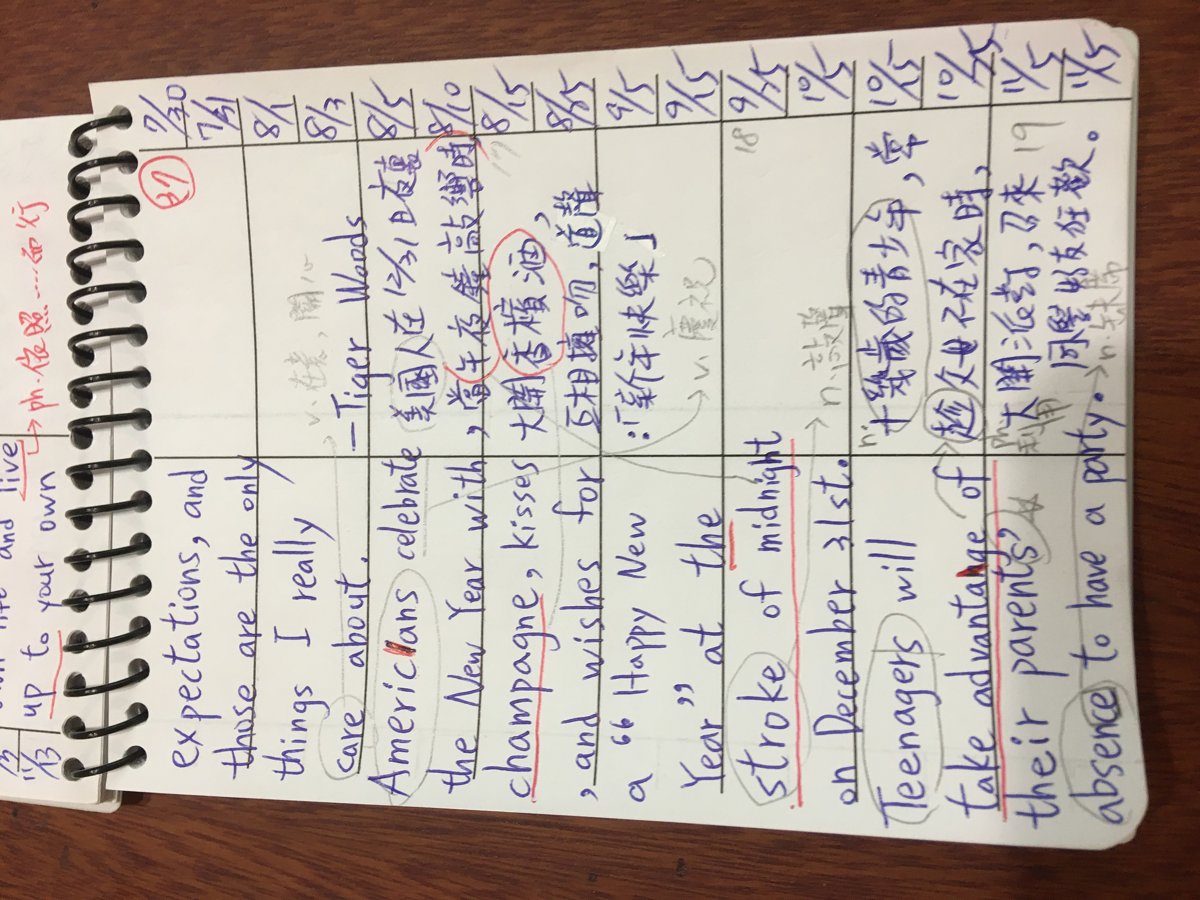 life and live
up to your own
→ ph.依照…而行
11/13
27
expectations, and
those are the only
things I really
care about.
—Tiger Woods
Americans celebrate
the New Year with
champagne, kisses
, and wishes for
a "Happy New
Year" at the
stroke of midnight
on December 31st.
Teenagers will
take advantage of
their parents'
absence to have a party.
v.在意,關心
美國人在12/31日夜裏
,當午夜鐘敲響時,
大開香檳油,
互相擁吻,道聲
:「新年快樂」
→v.慶祝
17
18
→n.鐘聲
n.
十幾歲的青少年,常
趁父母不在家時,
ph.利用
大開派對,召來
同學好友狂歡。
19
→n.缺席
7/30
7/31
8/1
8/3
8/5
8/10
8/15
8/25
9/5
9/15
9/25
10/5
10/15
10/25
11/5
11/15